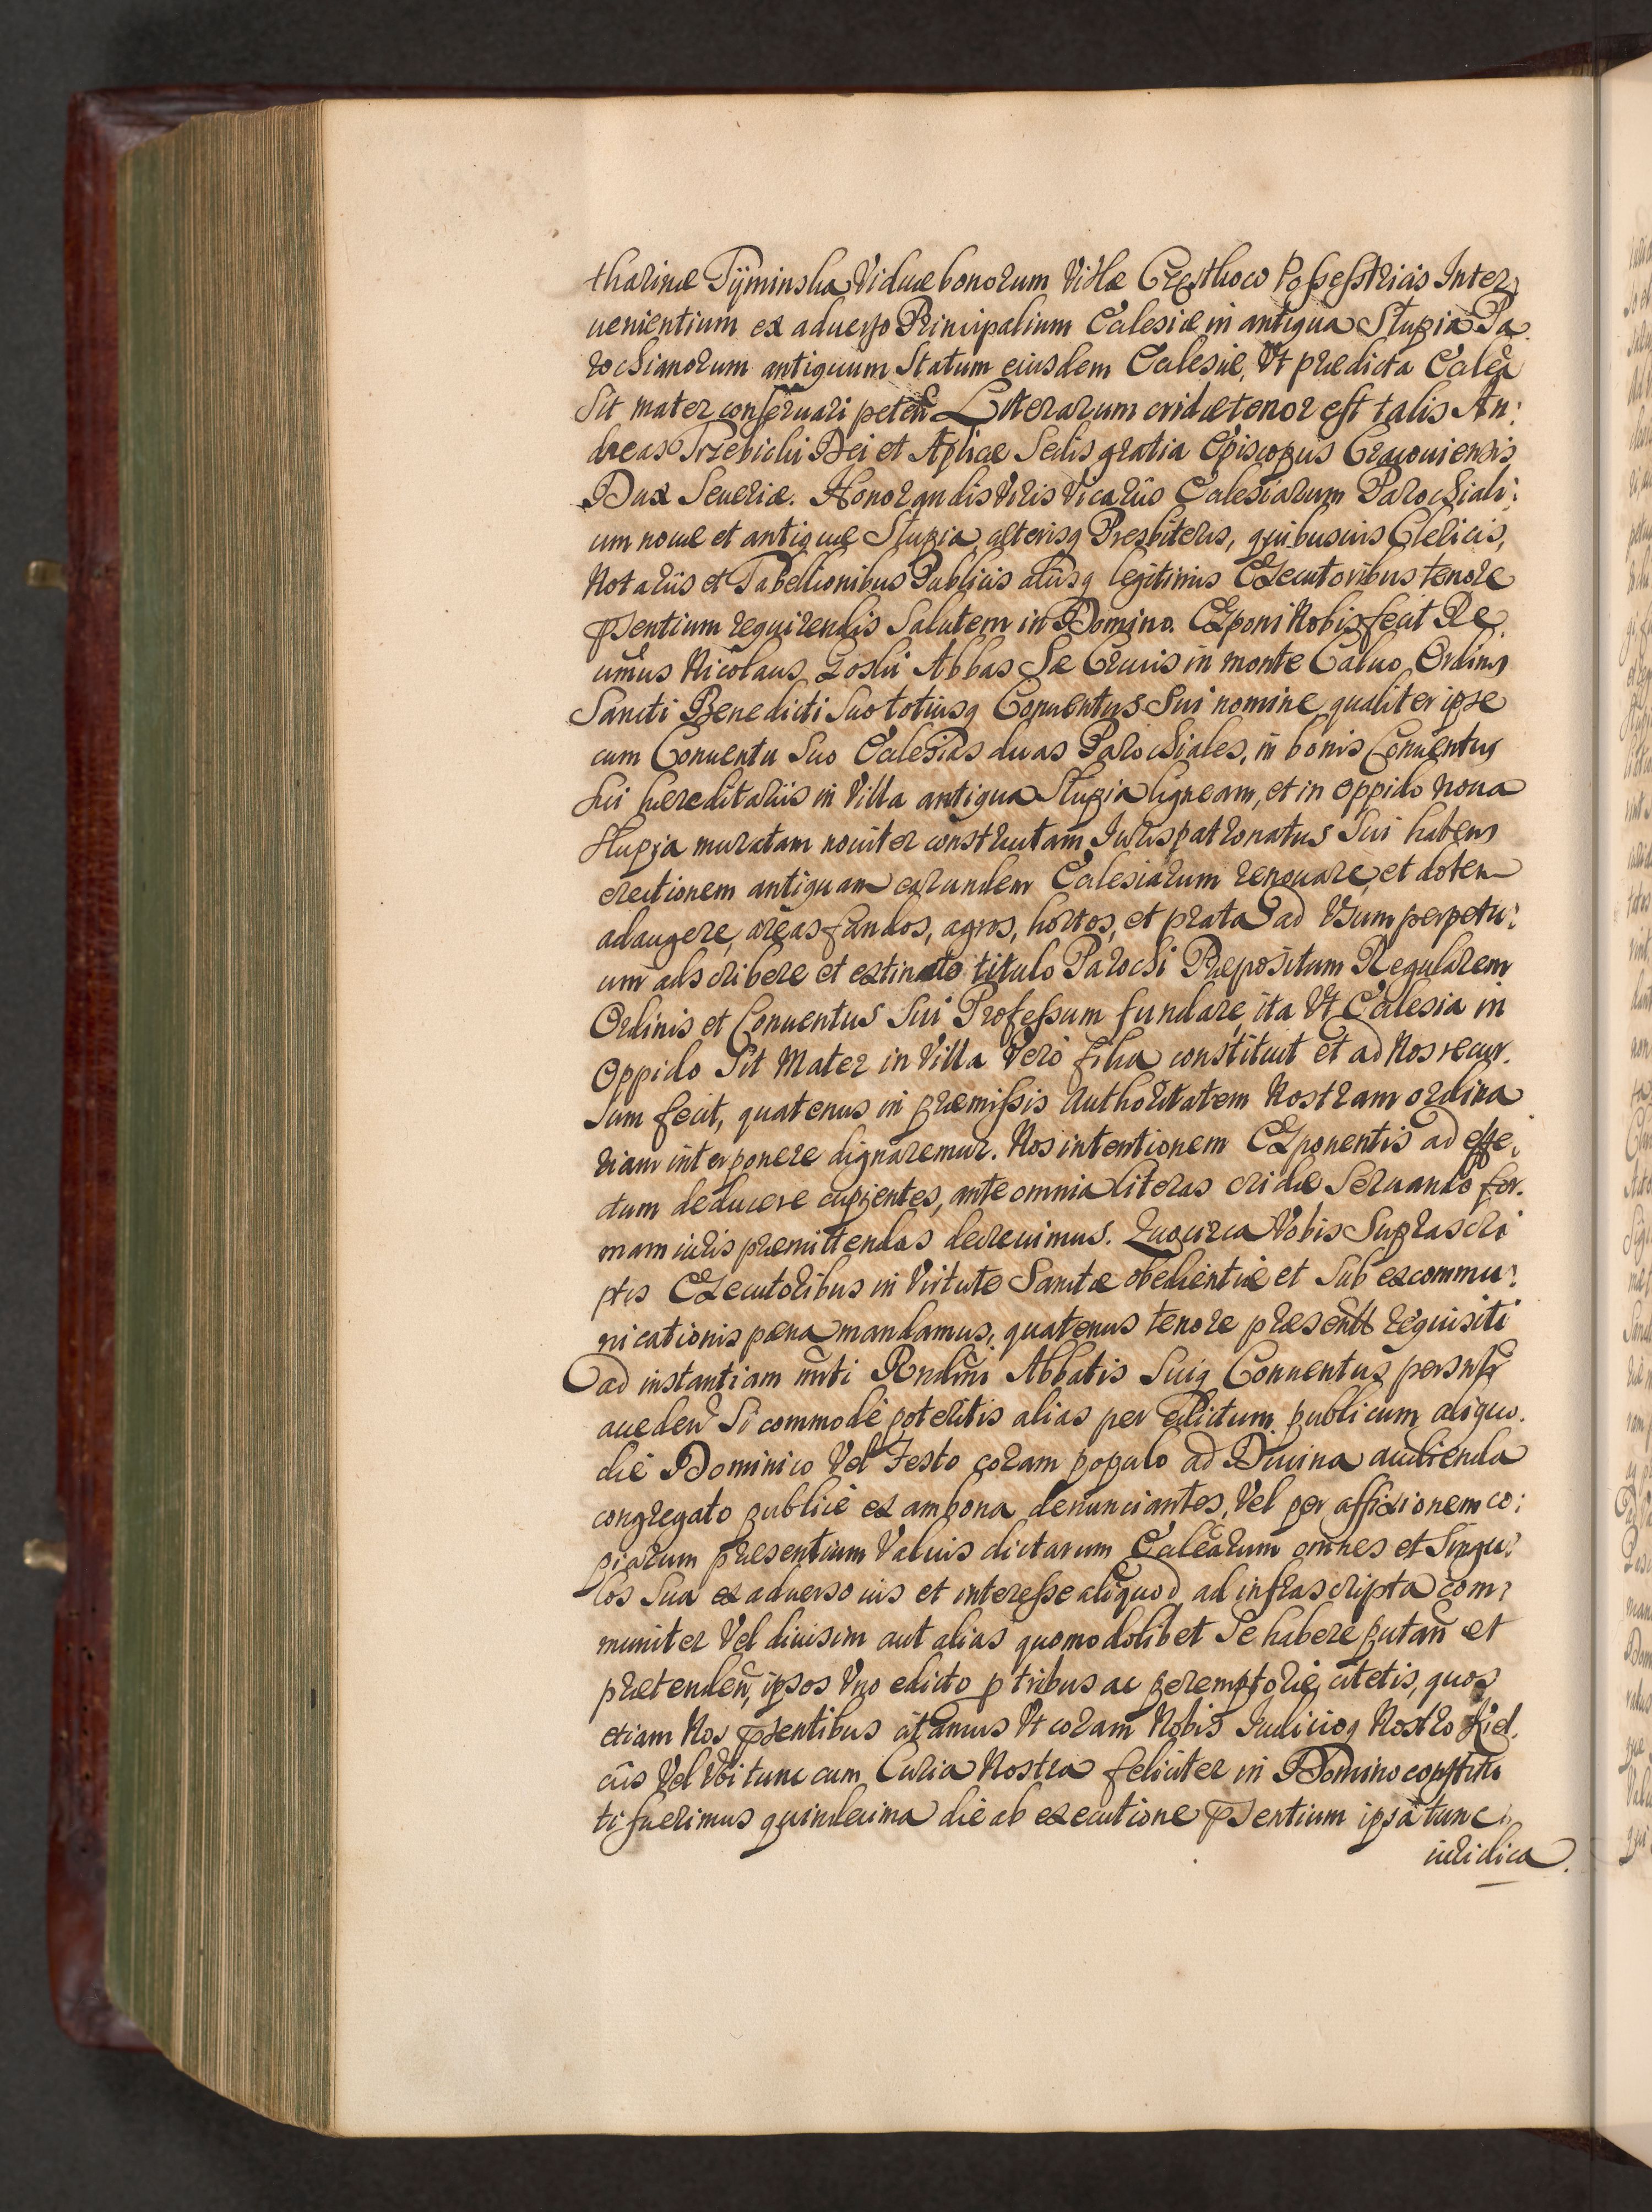 tharinæ Tÿminska Viduæ bonorum Villæ Grzethoco Possesstricis Inter
uenientium ex aduerso Principalium Ecclesiæ in antiqua Slupia Pa
rochianorum antiquum Statum eiusdem Ecclesiæ, Vt prædicta Eccleã
Sit mater conseruari peteñ Literarum cridæ tenor est talis An:
dreas Trzebicki Dei et Aplicæ Sedis gratia Episcopus Cracouiensis
Dux Seueriæ. Honorandis Viris Vicariis Ecclesiarum Parochiali:
um nouæ et antiquæ Slupia, cæterisq Presbiteris, quibusuis Clericis,
Notariis et Tabellionibus Publicis aliisq legitimis Executoribus tenore
pñsentium requirendis Salutem in Domino. Exponi Nobis fecit Re
uerñdus Nicolaus Goski Abbas Sæ Crucis in monte Caluo Ordinis
Sancti Benedicti Suo totiusq Conuentus Sui nomine qualiter ipse
cum Conuentu Suo Ecclesias duas Parochiales, in bonis Conuentus
Sui hæreditariis in Villa antiqua Slupia ligneam, et in oppido noua
Slupia muratam nouiter constructam Iurispatronatus Sui habens
erectionem antiquam earundem Ecclesiarum renouare, et dotem
adaugere, areas fundos, agros, hortos, et prata ad Vsum perpetu:
um adscribere et extincto titulo Parochi Præpositum Regularem
Ordinis et Conuentus Sui Professum fundare, ita Vt Ecclesia in
Oppido Sit Mater in Villa Verò filia constituit et ad Nos recur.
Sum fecit, quatenus in præmissis Authoritatem Nostram ordina
riam interponere dignaremur. Nos intentionem Exponentis ad effe,
ctum deducere cupientes, ante omnia literas cridæ Seruando for.
mam iuris præmittendas decreuimus. Quocirca Vobis Suprascri
ptis Executoribus in Virtute Sanctæ obedientiæ et Sub excommu:
nicationis pæna mandamus, quatenus tenore præsentt requisiti
ad instantiam Abbatis Suiq Conuentus
Si commodè poteritis alias per edictum publicum aliquo.
die Dominico Vel Festo coram populo ad Diuina audienda
congregato publicè ex ambona denunciantes, Vel per affixionem co:
piarum præsentium Valuis dictarum Ecclearum omnes et Singu:
los Sua ex aduerso ius et interesse aliquod ad infrascripta com:
muniter Vel diuisim aut alias quomodolibet Se habere putañ et
prætendeñ, ipsos Vno edicto p tribus ac peremptoriè citetis, quos
etiam Nos pñsentibus citamus Vt coram Nobis Iudicioq Nostro Kiel.
cÿs Vel Vbi tunc cum Curia Nostra feliciter in Domino constitu
ti fuerimus quindecima die ab executione pñsentium ipsa tunc
iuridica.